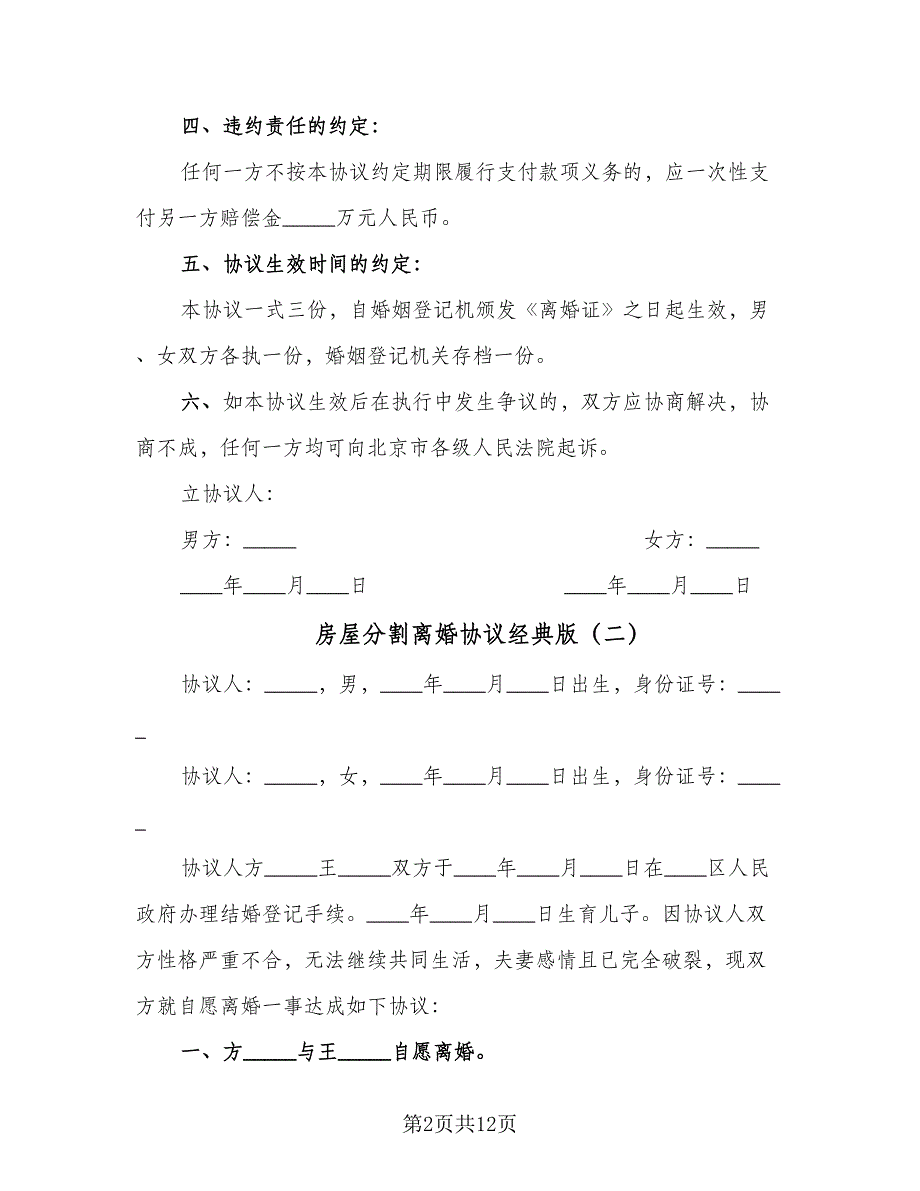 四、违约责任的约定：
任何一方不按本协议约定期限履行支付款项义务的，应一次性支
付另一方赔偿金_____万元人民币。
五、协议生效时间的约定：
本协议一式三份，自婚姻登记机颁发《离婚证》之日起生效，男
、女双方各执一份，婚姻登记机关存档一份。
六、如本协议生效后在执行中发生争议的，双方应协商解决，协
商不成，任何一方均可向北京市各级人民法院起诉。
立协议人：
男方：_____ 女方：_____
____年____月____日 ____年____月____日
房屋分割离婚协议经典版（二）
协议人：_____，男，____年____月____日出生，身份证号：____
_
协议人：_____，女，____年____月____日出生，身份证号：____
_
协议人方_____王_____双方于____年____月____日在____区人民
政府办理结婚登记手续。____年____月____日生育儿子。因协议人双
方性格严重不合，无法继续共同生活，夫妻感情且已完全破裂，现双
方就自愿离婚一事达成如下协议：
一、方_____与王_____自愿离婚。
第2页共12页